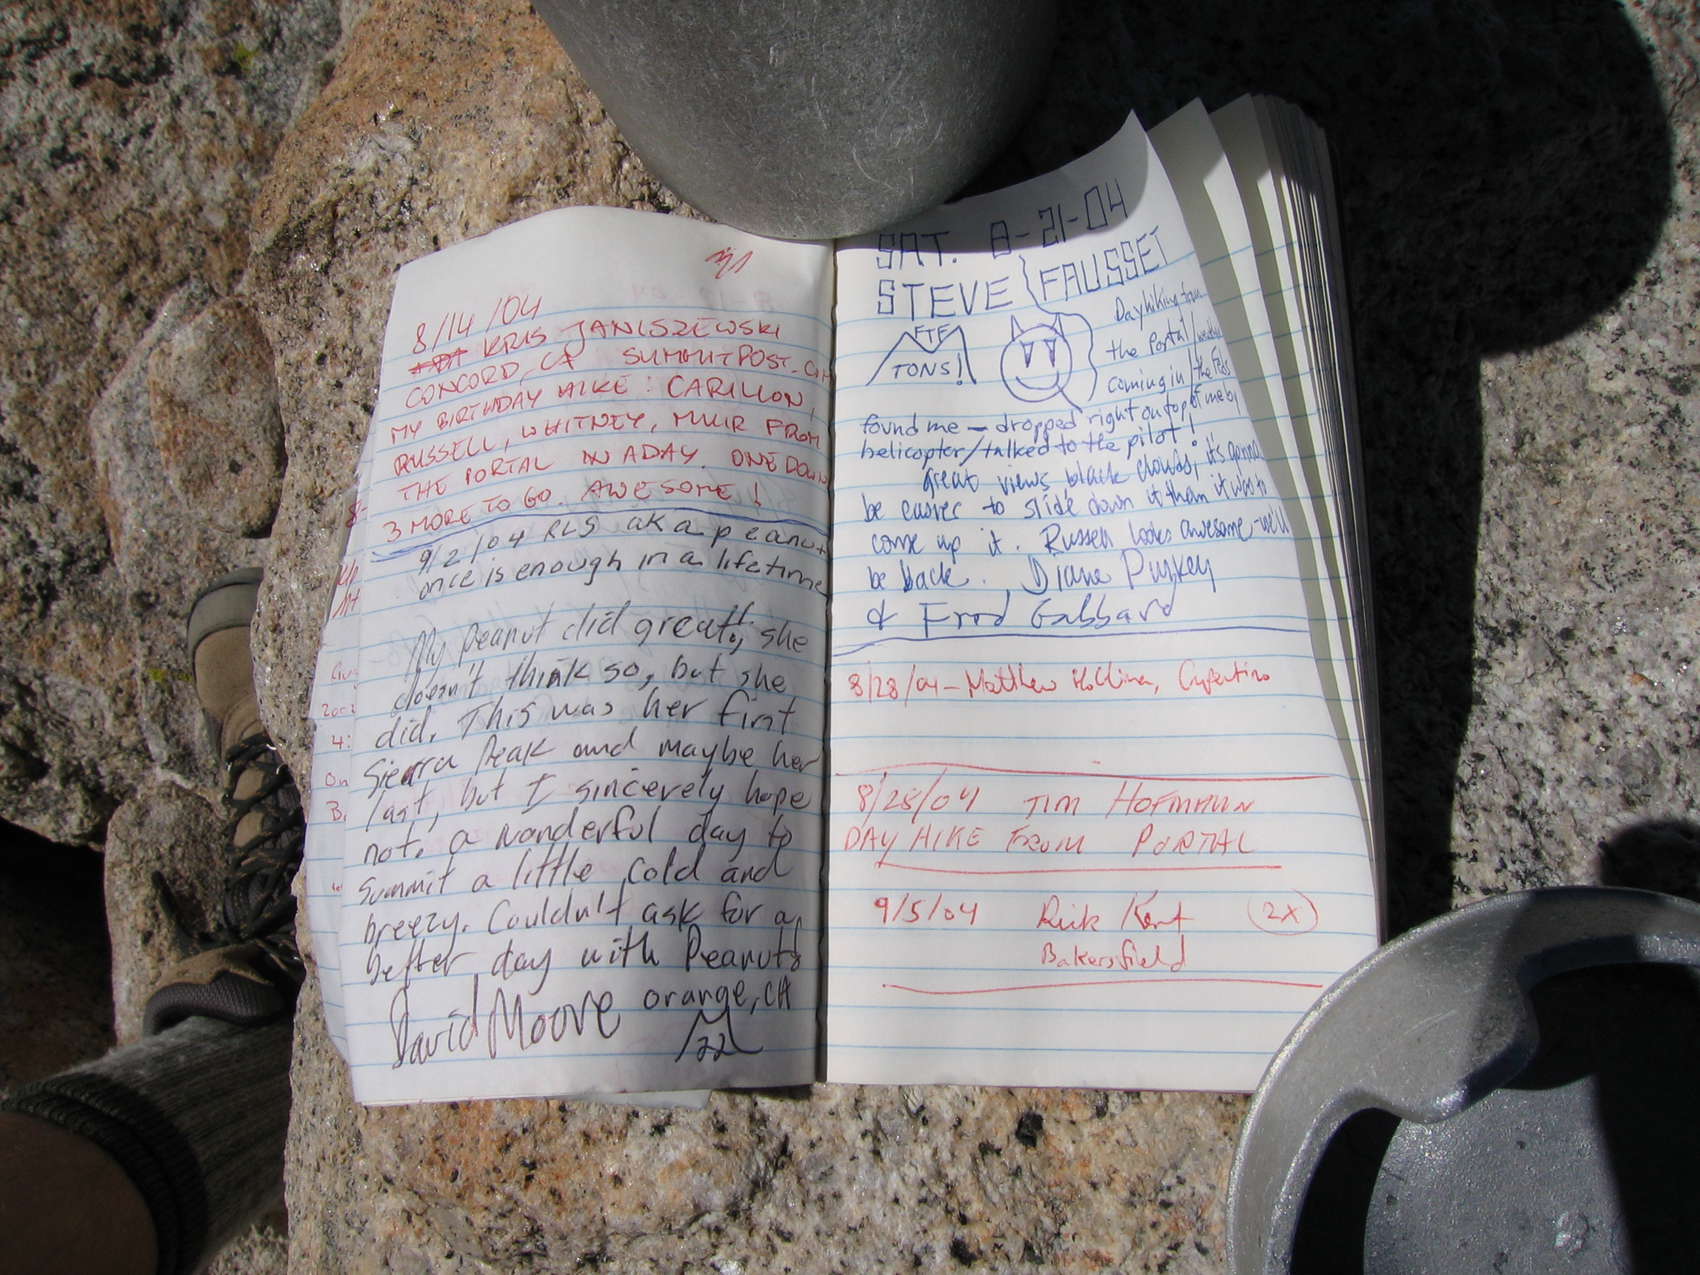 31
8/14/04
KRIS JANISZEWSKI
CONCORD, CA SUMMITPOST.COM
MY BIRTHDAY HIKE: CARILLON,
RUSSELL, WHITNEY, MUIR FROM
THE PORTAL IN A DAY. ONE DOWN
3 MORE TO GO. AWESOME!
9/2/04 RLS aka peanut
once is enough in a lifetime
My Peanut did great, she
doesn't think so, but she
did. This was her first
Sierra Peak and maybe her
last, but I sincerely hope
not. a wonderful day to
summit a little cold and
breezy. Couldn't ask for a
better day with Peanuts
David Moore orange, CA
22
SAT. 8-21-04
STEVE FAUSSET
FTF
TONS!
Day hiking from
the Portal/
coming in/the Feds
found me – dropped right on top of me by
helicopter/talked to the pilot!
great views black clouds, it's gonna
be easier to slide down it than it was to
come up it. Russell looks awesome - we'll
be back. Diane Purkey
& Fred Gabbard
8/28/04 - Matthew Holliman, Cupertino
8/28/04 TIM HOFMANN
DAY HIKE FROM PORTAL
9/5/04 Rick Kent 2x
Bakersfield